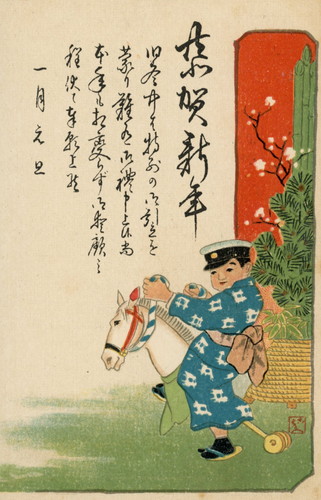 恭賀新年
旧冬中は特別の御引立を
蒙り難有御禮申上候尚
本年も相変らず御愛顧之
程伏て奉願上候
一月元旦